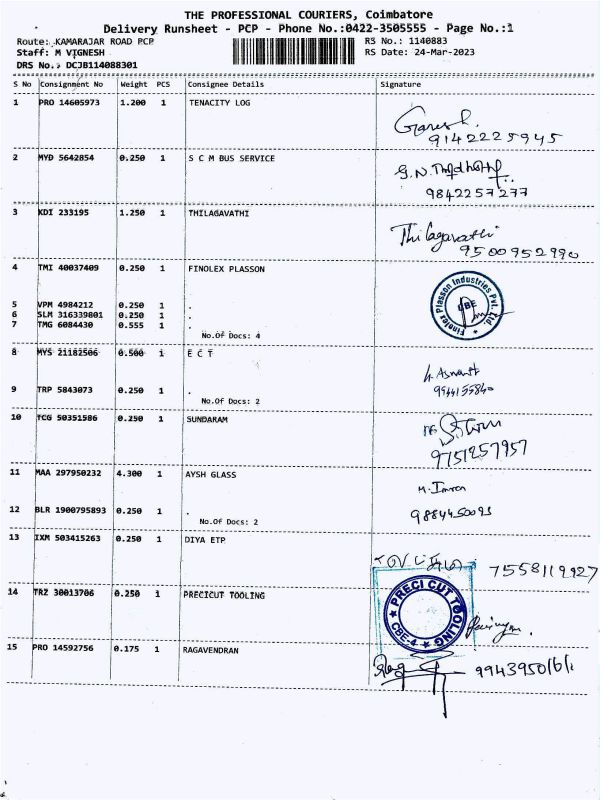 THE PROFESSIONAL COURIERS, Coimbatore
Delivery Runsheet - PCP - Phone No.:0422-3505555 - Page No.:1
Route: KAMARAJAR ROAD PCP RS No.: 1140883
Staff: M VIGNESH RS Date: 24-Mar-2023
DRS No.: DCJB114088301
S No Consignment No Weight PCS Consignee Details Signature
1 PRO 14605973 1.200 1 TENACITY LOG
Ganesh.
9142225945
2 MYD 5642854 0.250 1 S C M BUS SERVICE
9842257277
3 KDI 233195 1.250 1 THILAGAVATHI
Thilagavathi
9500952990
4 TMI 40037409 0.250 1 FINOLEX PLASSON
Finolex Plasson Industries Pvt. Ltd.
CBE
5 VPM 4984212 0.250 1 .
6 SLM 316339801 0.250 1 .
7 TMG 6084430 0.555 1 .
No.Of Docs: 4
8 MYS 21182506 0.500 1 E C T
9 TRP 5843073 0.250 1 .
No.Of Docs: 2
10 TCG 50351586 0.250 1 SUNDARAM
9751257957
11 MAA 297950232 4.300 1 AYSH GLASS
M. Imran
12 BLR 1900795893 0.250 1 .
No.Of Docs: 2
13 IXM 503415263 0.250 1 DIYA ETP
7558119927
14 TRZ 30013706 0.250 1 PRECICUT TOOLING
PRECI CUT TOOLING
CBE-4
15 PRO 14592756 0.175 1 RAGAVENDRAN